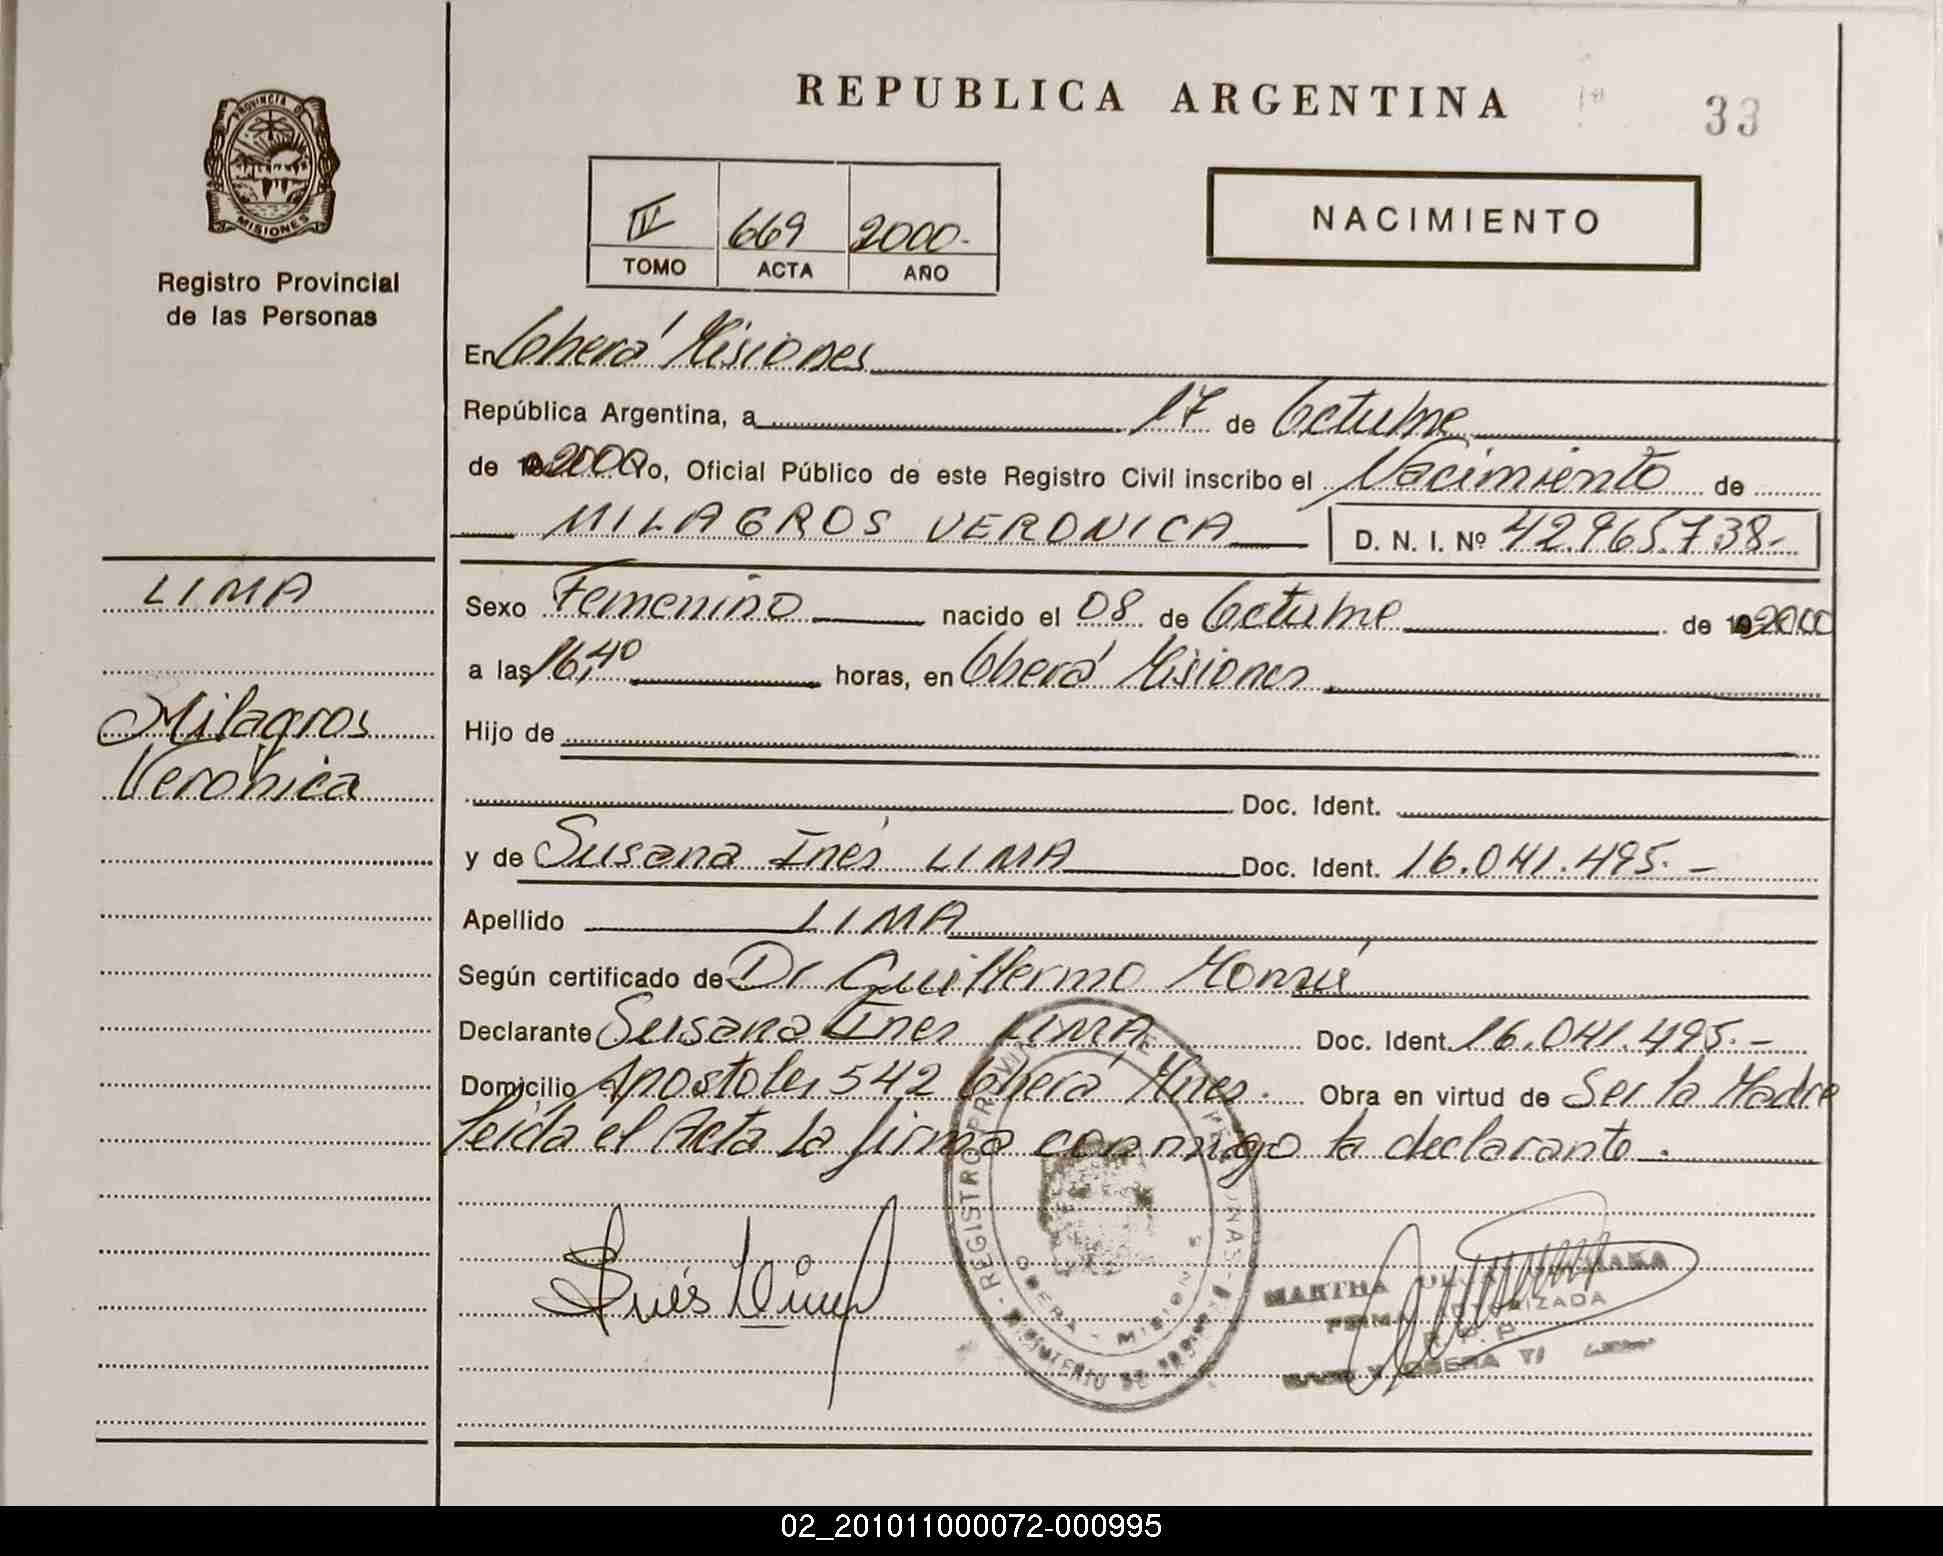 REPUBLICA ARGENTINA
33
PROVINCIA D
MISIONES
Registro Provincial
de las Personas
IV 669 2000.-
TOMO ACTA AÑO
NACIMIENTO
En Oberá Misiones
República Argentina, a 17 de Octubre
de 2000 Yo, Oficial Público de este Registro Civil inscribo el Nacimiento de
MILAGROS VERONICA D. N. I. Nº 42.965.738.-
LIMA
Sexo Femenino nacido el 08 de Octubre de 2000
a las 16,40 horas, en Oberá Misiones
Milagros
Verónica
Hijo de
Doc. Ident.
y de Susana Inés LIMA Doc. Ident. 16.041.495.-
Apellido LIMA
Según certificado de Dr Guillermo
Declarante Susana Ines LIMA Doc. Ident. 16.041.495.-
Domicilio Apostoles 542 Oberá Mnes. Obra en virtud de Ser la Madre
leída el Acta la firma conmigo la declarante.
Inés Lima
REGISTRO PERSONAS
OBERA - MISIONES
MINISTERIO DE
MARTHA
FIRMA AUTORIZADA
R.P.P.
OBERA
02_201011000072-000995